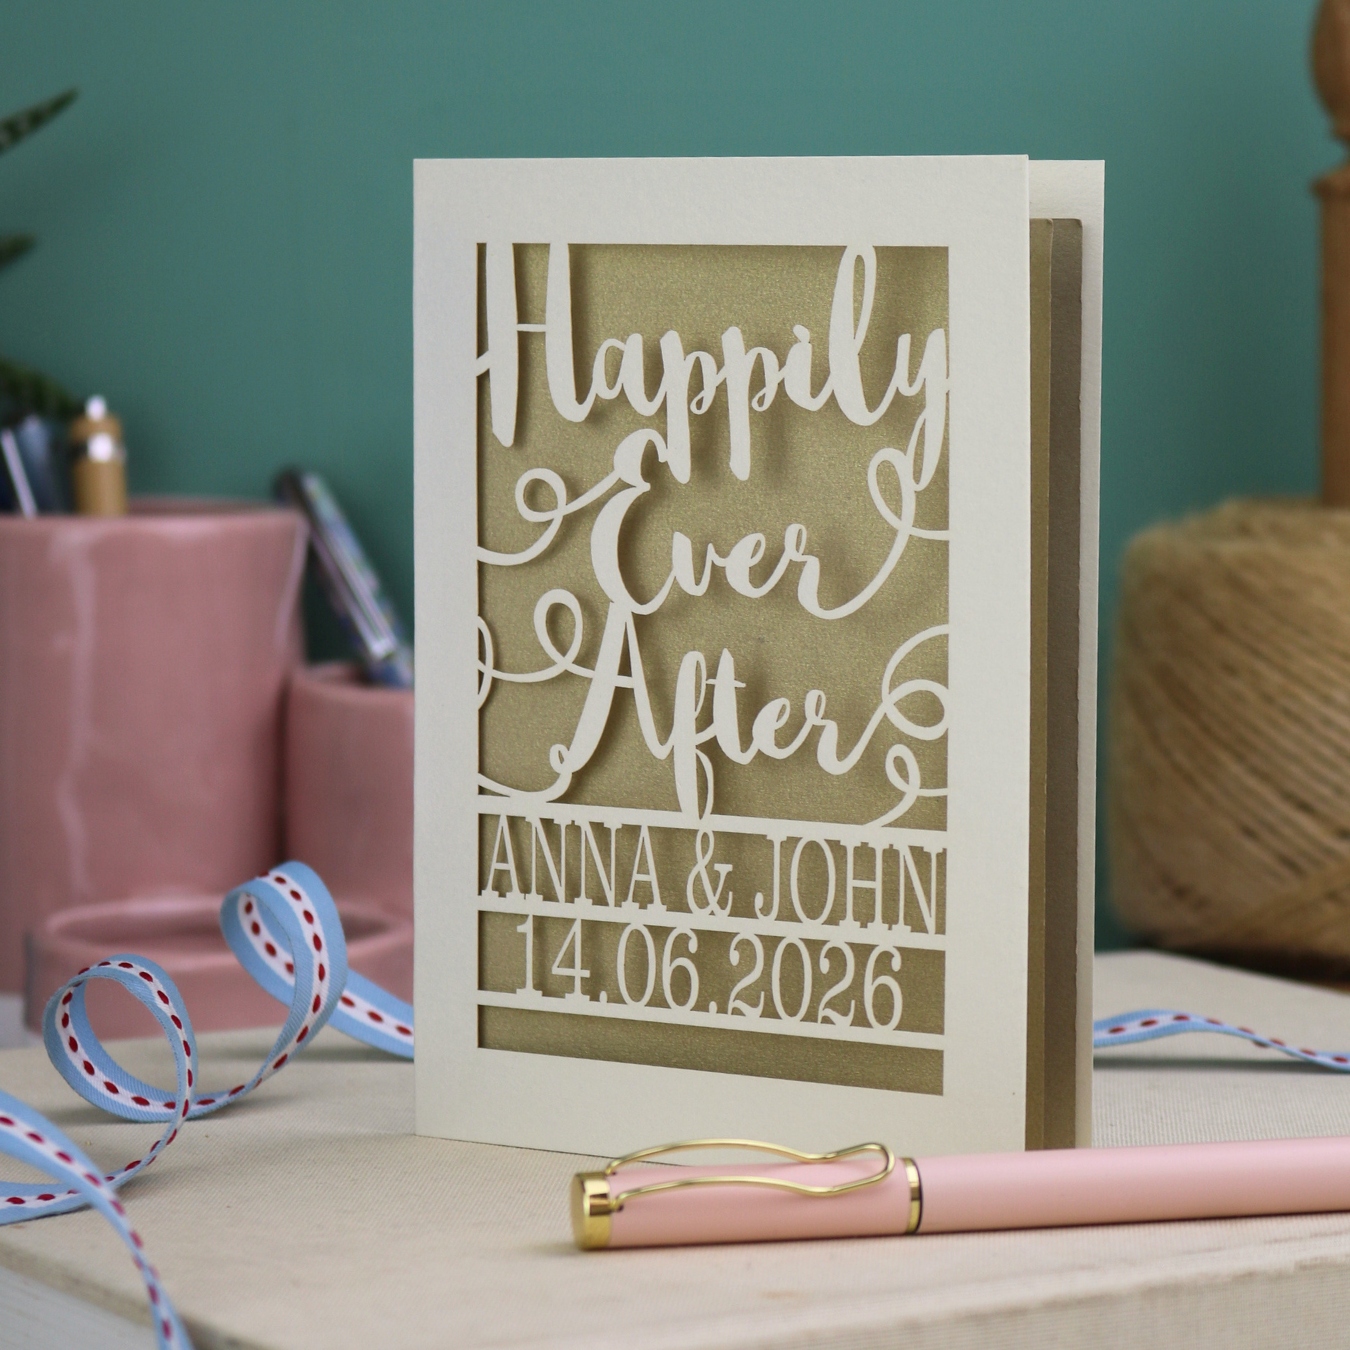 Happily
Ever
After
ANNA & JOHN
14.06.2026